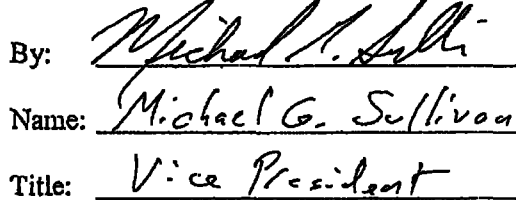 By: Michael G. Sulli
Name: Michael G. Sullivan
Title: Vice President